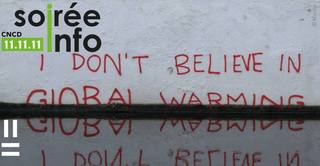 soirée
CNCD
11.11.11
info
I DON'T BELIEVE IN
GLOBAL WARMING